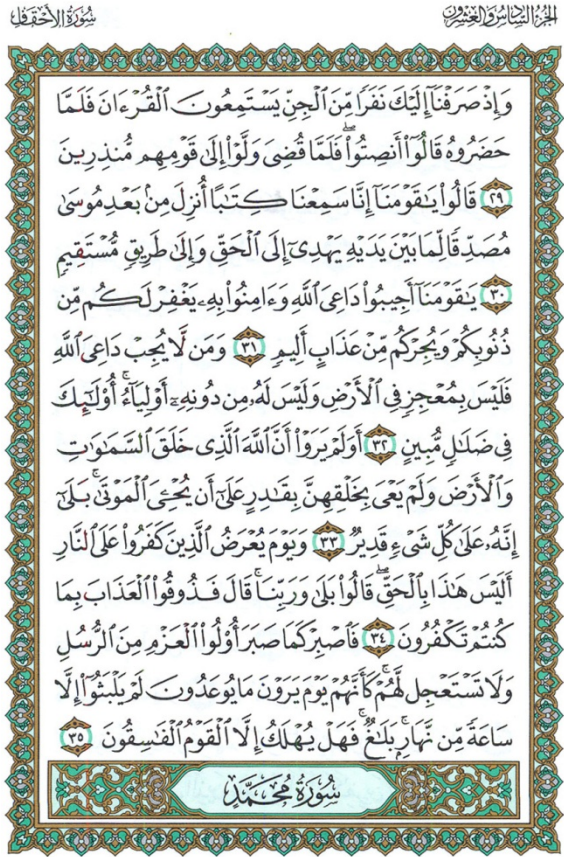 الجزء السادس والعشرون
سورة الأحقاف
وَإِذْ صَرَفْنَآ إِلَيْكَ نَفَرًا مِّنَ ٱلْجِنِّ يَسْتَمِعُونَ ٱلْقُرْءَانَ فَلَمَّا
حَضَرُوهُ قَالُوٓا۟ أَنصِتُوا۟ ۖ فَلَمَّا قُضِىَ وَلَّوْا۟ إِلَىٰ قَوْمِهِم مُّنذِرِينَ
﴿٢٩﴾ قَالُوا۟ يَٰقَوْمَنَآ إِنَّا سَمِعْنَا كِتَٰبًا أُنزِلَ مِنۢ بَعْدِ مُوسَىٰ
مُصَدِّقًا لِّمَا بَيْنَ يَدَيْهِ يَهْدِىٓ إِلَى ٱلْحَقِّ وَإِلَىٰ طَرِيقٍ مُّسْتَقِيمٍ
﴿٣٠﴾ يَٰقَوْمَنَآ أَجِيبُوا۟ دَاعِىَ ٱللَّهِ وَءَامِنُوا۟ بِهِۦ يَغْفِرْ لَكُم مِّن
ذُنُوبِكُمْ وَيُجِرْكُم مِّنْ عَذَابٍ أَلِيمٍ ﴿٣١﴾ وَمَن لَّا يُجِبْ دَاعِىَ ٱللَّهِ
فَلَيْسَ بِمُعْجِزٍ فِى ٱلْأَرْضِ وَلَيْسَ لَهُۥ مِن دُونِهِۦٓ أَوْلِيَآءُ ۚ أُو۟لَٰٓئِكَ
فِى ضَلَٰلٍ مُّبِينٍ ﴿٣٢﴾ أَوَلَمْ يَرَوْا۟ أَنَّ ٱللَّهَ ٱلَّذِى خَلَقَ ٱلسَّمَٰوَٰتِ
وَٱلْأَرْضَ وَلَمْ يَعْىَ بِخَلْقِهِنَّ بِقَٰدِرٍ عَلَىٰٓ أَن يُحْۦِىَ ٱلْمَوْتَىٰ ۚ بَلَىٰٓ
إِنَّهُۥ عَلَىٰ كُلِّ شَىْءٍ قَدِيرٌ ﴿٣٣﴾ وَيَوْمَ يُعْرَضُ ٱلَّذِينَ كَفَرُوا۟ عَلَى ٱلنَّارِ
أَلَيْسَ هَٰذَا بِٱلْحَقِّ ۖ قَالُوا۟ بَلَىٰ وَرَبِّنَا ۚ قَالَ فَذُوقُوا۟ ٱلْعَذَابَ بِمَا
كُنتُمْ تَكْفُرُونَ ﴿٣٤﴾ فَٱصْبِرْ كَمَا صَبَرَ أُو۟لُوا۟ ٱلْعَزْمِ مِنَ ٱلرُّسُلِ
وَلَا تَسْتَعْجِل لَّهُمْ ۚ كَأَنَّهُمْ يَوْمَ يَرَوْنَ مَا يُوعَدُونَ لَمْ يَلْبَثُوٓا۟ إِلَّا
سَاعَةً مِّن نَّهَارٍۭ ۚ بَلَٰغٌ ۚ فَهَلْ يُهْلَكُ إِلَّا ٱلْقَوْمُ ٱلْفَٰسِقُونَ ﴿٣٥﴾
سُورَةُ مُحَمَّدٍ